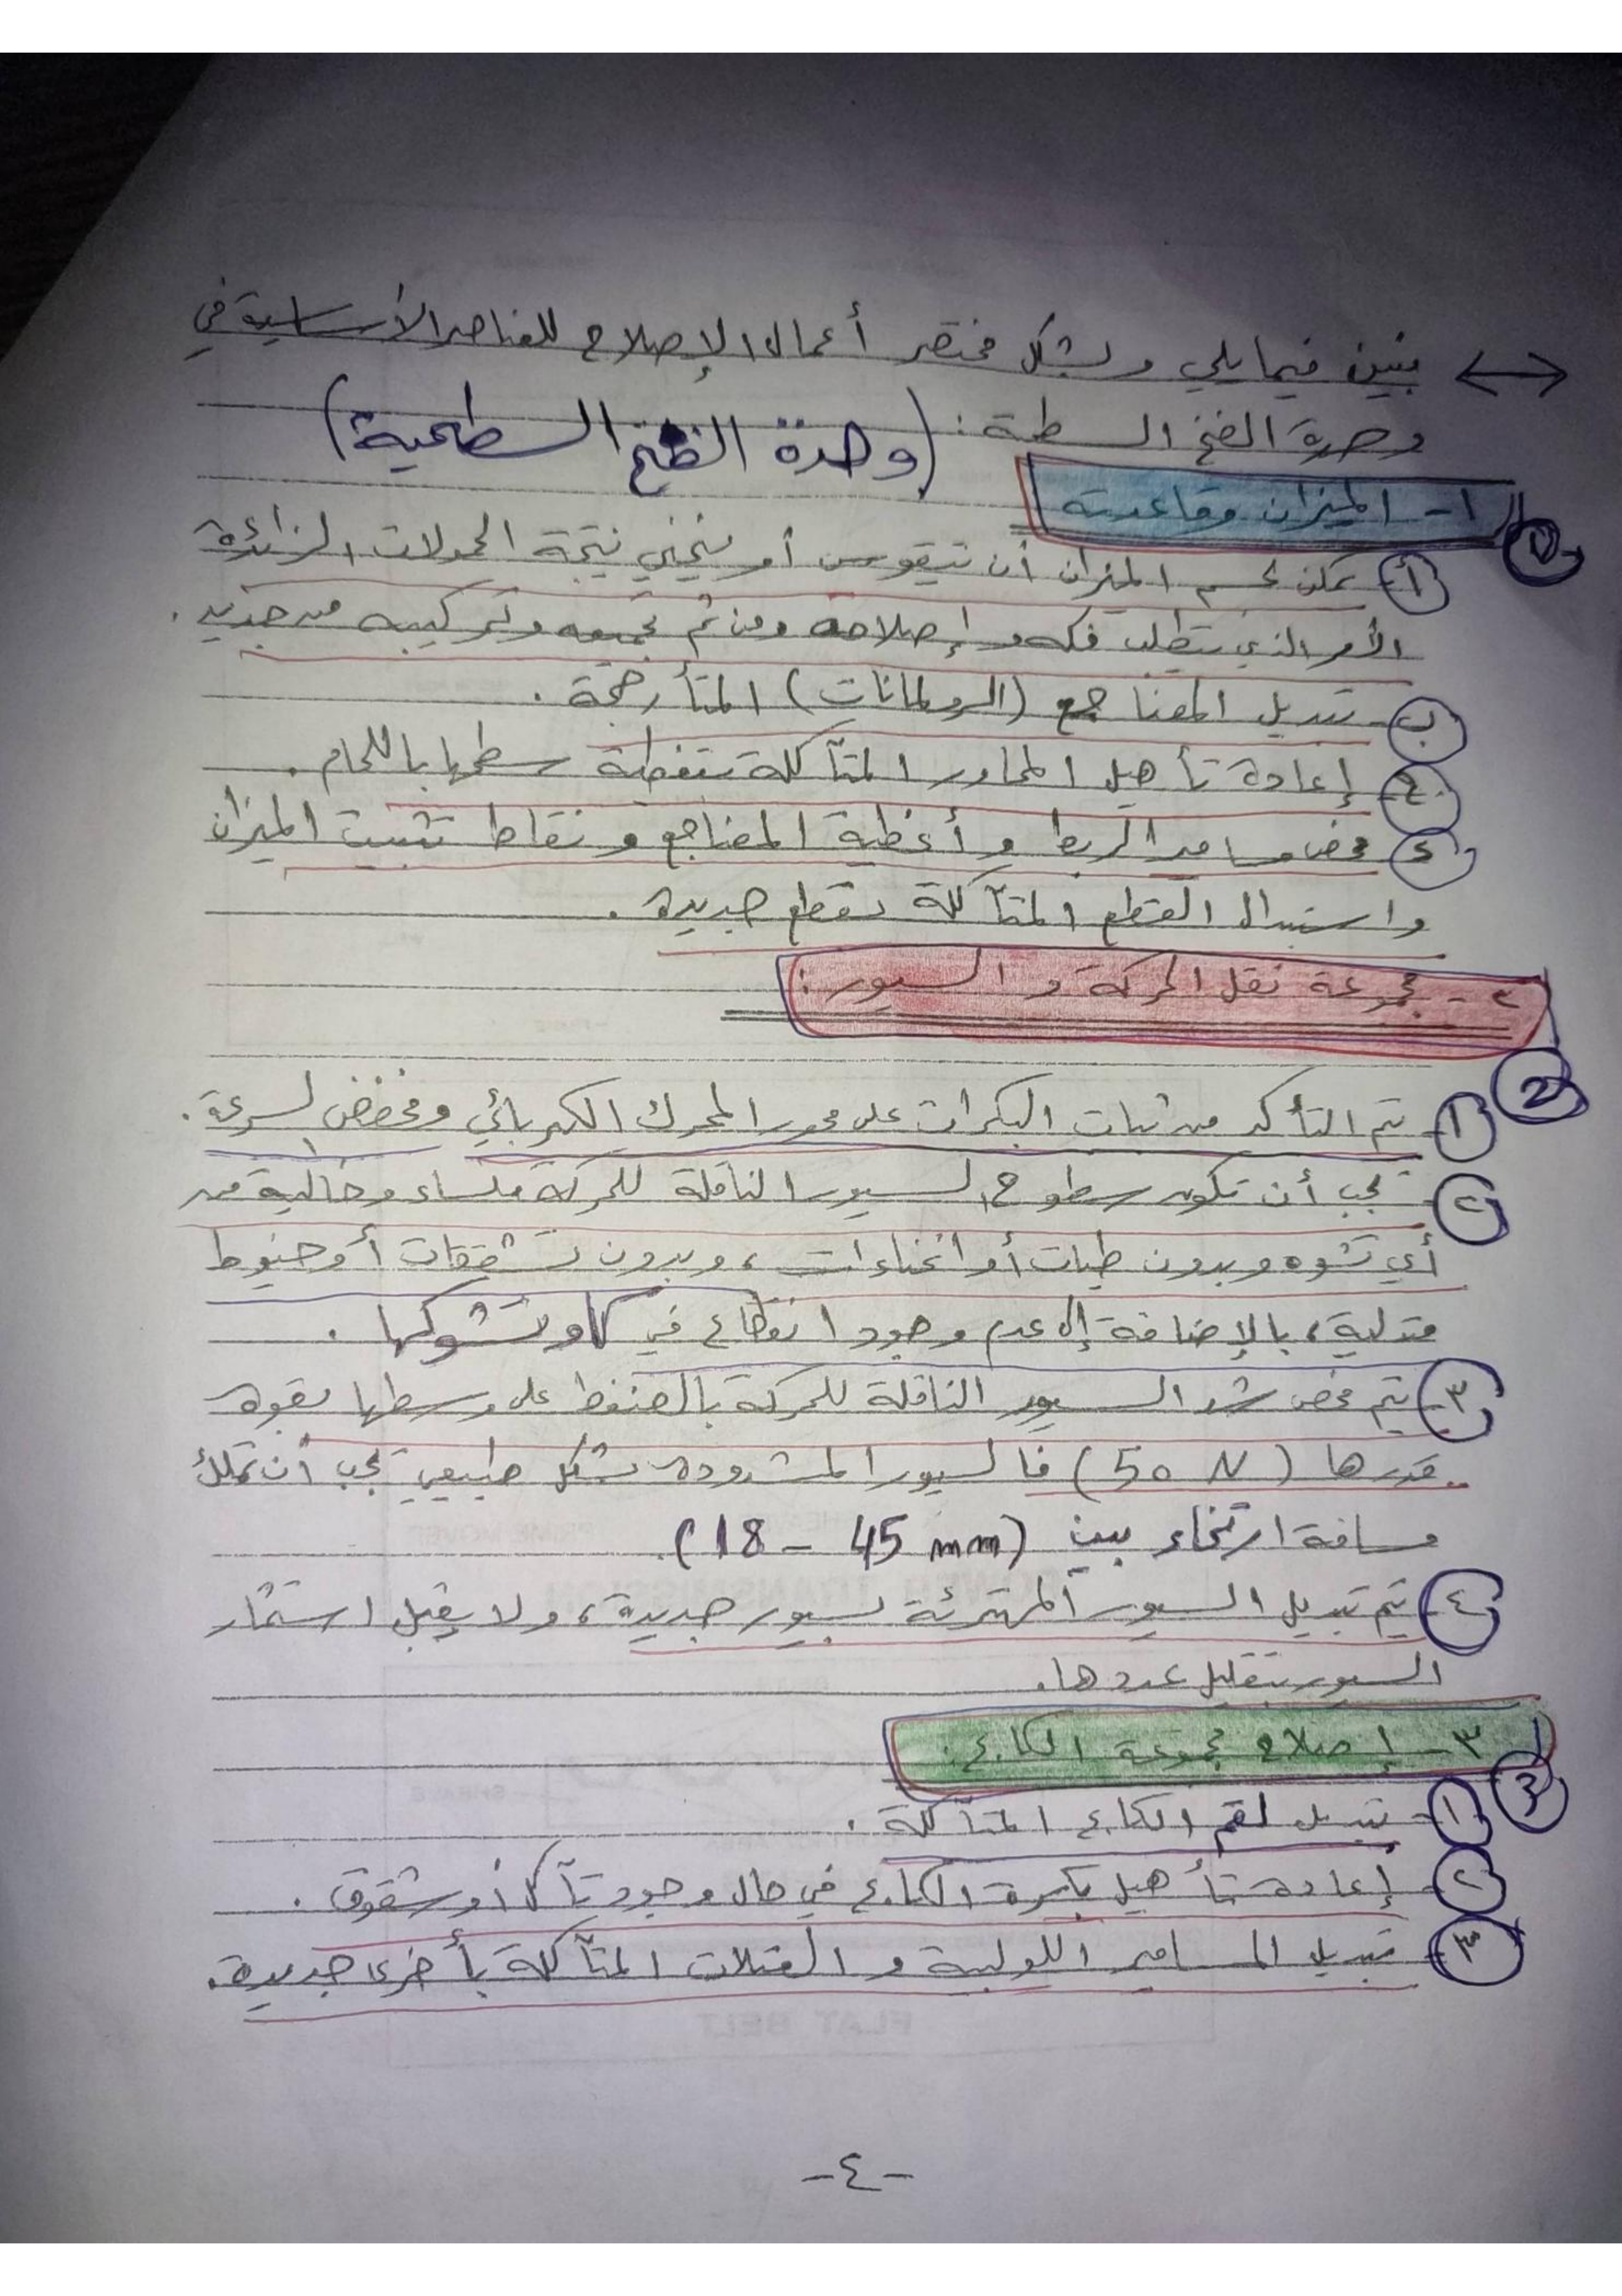 نبين فيما يلي وبشكل مختصر أعمال الإصلاح للعناصر الأساسية في
وحدة الضخ السطحية : (وحدة الضخ السطحية)
١- الميزان وقاعدته
1
أ- يمكن لجسم الميزان أن يتقوس أو ينحني نتيجة الحمولات الزائدة
الأمر الذي يتطلب فكه وإصلاحه ومن ثم تجميعه وتركيبه من جديد .
ب- تبديل المضاجع (الرولمانات) المتأرجحة .
ج- إعادة تأهيل المحاور المتآكلة بتغطية سطحها باللحام .
د- فحص مسامير الربط وأغطية المضاجع ونقاط تثبيت الميزان
واستبدال القطع المتآكلة بقطع جديدة .
٢- مجموعة نقل الحركة والسيور :
2
١- يتم التأكد من ثبات البكرات على محور المحرك الكهربائي ومخفض السرعة .
٢- يجب أن تكون سطوح السيور الناقلة للحركة ملساء وخالية من
أي تشوه وبدون طيات أو انحناءات ، وبدون تشققات أو خيوط
متدلية ، بالإضافة إلى عدم وجود انقطاع في كاوتشوكها .
٣- يتم فحص شد السيور الناقلة للحركة بالضغط على وسطها بقوة
قدرها (50 N) فالسيور المشدودة بشكل طبيعي يجب أن تملك
مسافة ارتخاء بين (18 - 45 mm) .
٤- يتم تبديل السيور المهترئة بسيور جديدة ، ولا يقبل استثمار
السيور بتقليل عددها .
٣- إصلاح مجموعة الكابح :
3
١- تبديل لقم الكابح المتآكلة .
٢- إعادة تأهيل بكرة الكابح في حال وجود تآكل أو شقوق .
٣- تبديل المسامير اللولبية و العتلات المتآكلة بأخرى جديدة .
-٤-